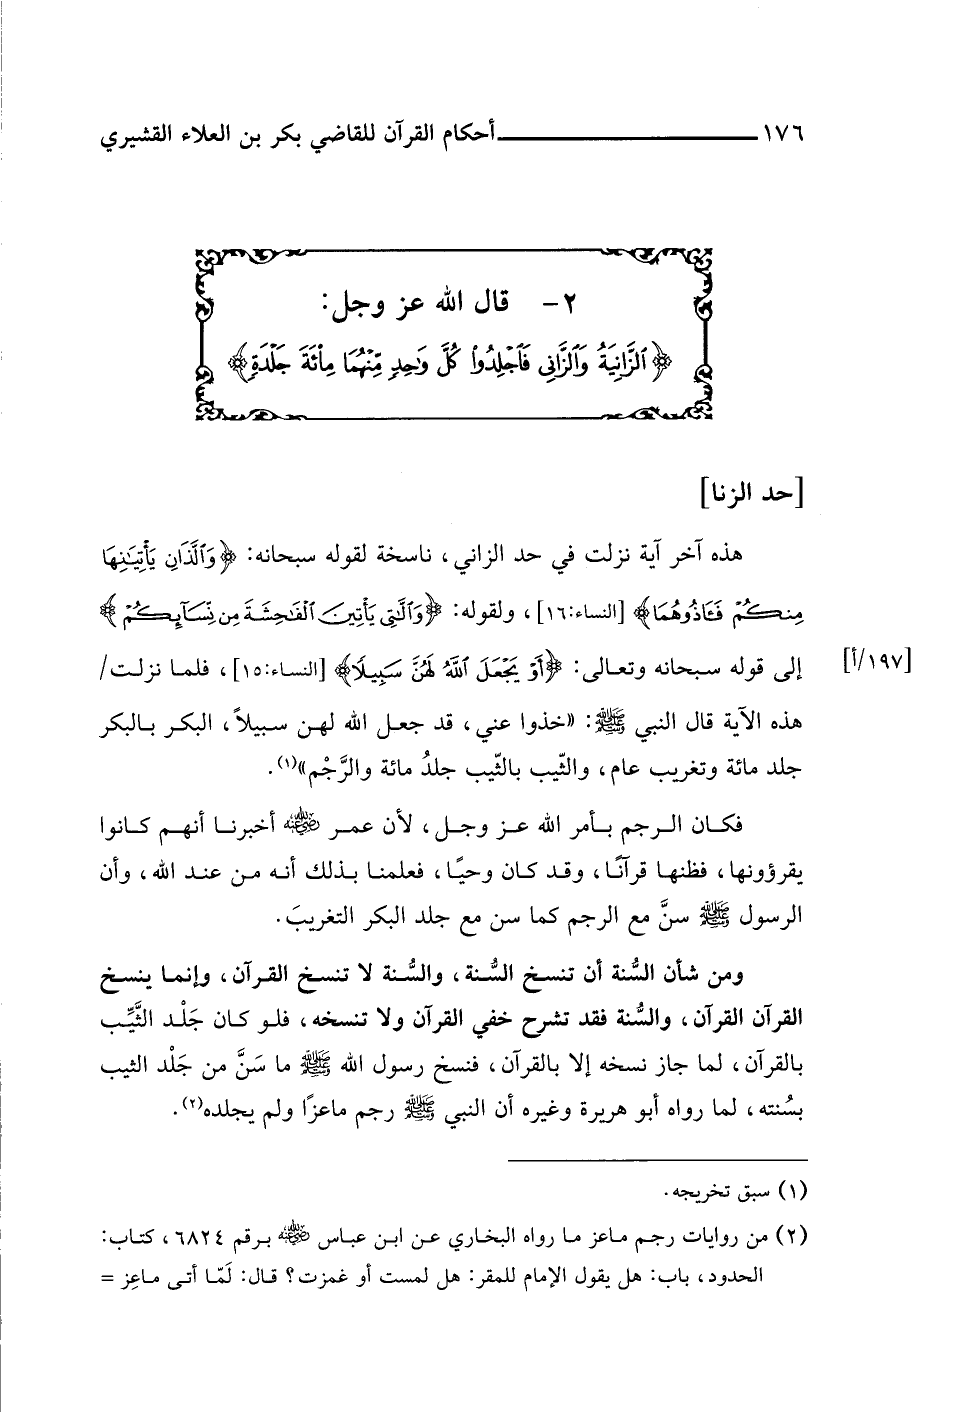 ١٧٦ ــــــــ أحكام القرآن للقاضي بكر بن العلاء القشيري
٢- قال الله عز وجل:
﴿ٱلزَّانِيَةُ وَٱلزَّانِى فَٱجْلِدُوا۟ كُلَّ وَٰحِدٍ مِّنْهُمَا مِا۟ئَةَ جَلْدَةٍ﴾
[حد الزنا]
هذه آخر آية نزلت في حد الزاني، ناسخة لقوله سبحانه: ﴿وَٱلَّذَانِ يَأْتِيَٰنِهَا
مِنكُمْ فَـَٔاذُوهُمَا﴾ [النساء:١٦]، ولقوله: ﴿وَٱلَّٰتِى يَأْتِينَ ٱلْفَٰحِشَةَ مِن نِّسَآئِكُمْ﴾
إلى قوله سبحانه وتعالى: ﴿أَوْ يَجْعَلَ ٱللَّهُ لَهُنَّ سَبِيلًا﴾ [النساء:١٥]، فلما نزلت/ [١٩٧/أ]
هذه الآية قال النبي ﷺ: «خذوا عني، قد جعل الله لهن سبيلاً، البكر بالبكر
جلد مائة وتغريب عام، والثّيب بالثّيب جلدُ مائة والرَّجْم»(١).
فكان الرجم بأمر الله عز وجل، لأن عمر رضي الله عنه أخبرنا أنهم كانوا
يقرؤونها، فظنها قرآنًا، وقد كان وحيًا، فعلمنا بذلك أنه من عند الله، وأن
الرسول ﷺ سنَّ مع الرجم كما سن مع جلد البكر التغريبَ.
ومن شأن السُّنة أن تنسخ السُّنة، والسُّنة لا تنسخ القرآن، وإنما ينسخ
القرآن القرآن، والسُّنة فقد تشرح خفي القرآن ولا تنسخه، فلو كان جَلْد الثَّيِّب
بالقرآن، لما جاز نسخه إلا بالقرآن، فنسخ رسول الله ﷺ ما سَنَّ من جَلْد الثيب
بسُنته، لما رواه أبو هريرة وغيره أن النبي ﷺ رجم ماعزًا ولم يجلده(٢).
(١) سبق تخريجه.
(٢) من روايات رجم ماعز ما رواه البخاري عن ابن عباس رضي الله عنه برقم ٦٨٢٤، كتاب:
الحدود، باب: هل يقول الإمام للمقر: هل لمست أو غمزت؟ قال: لَمّا أتى ماعِز =